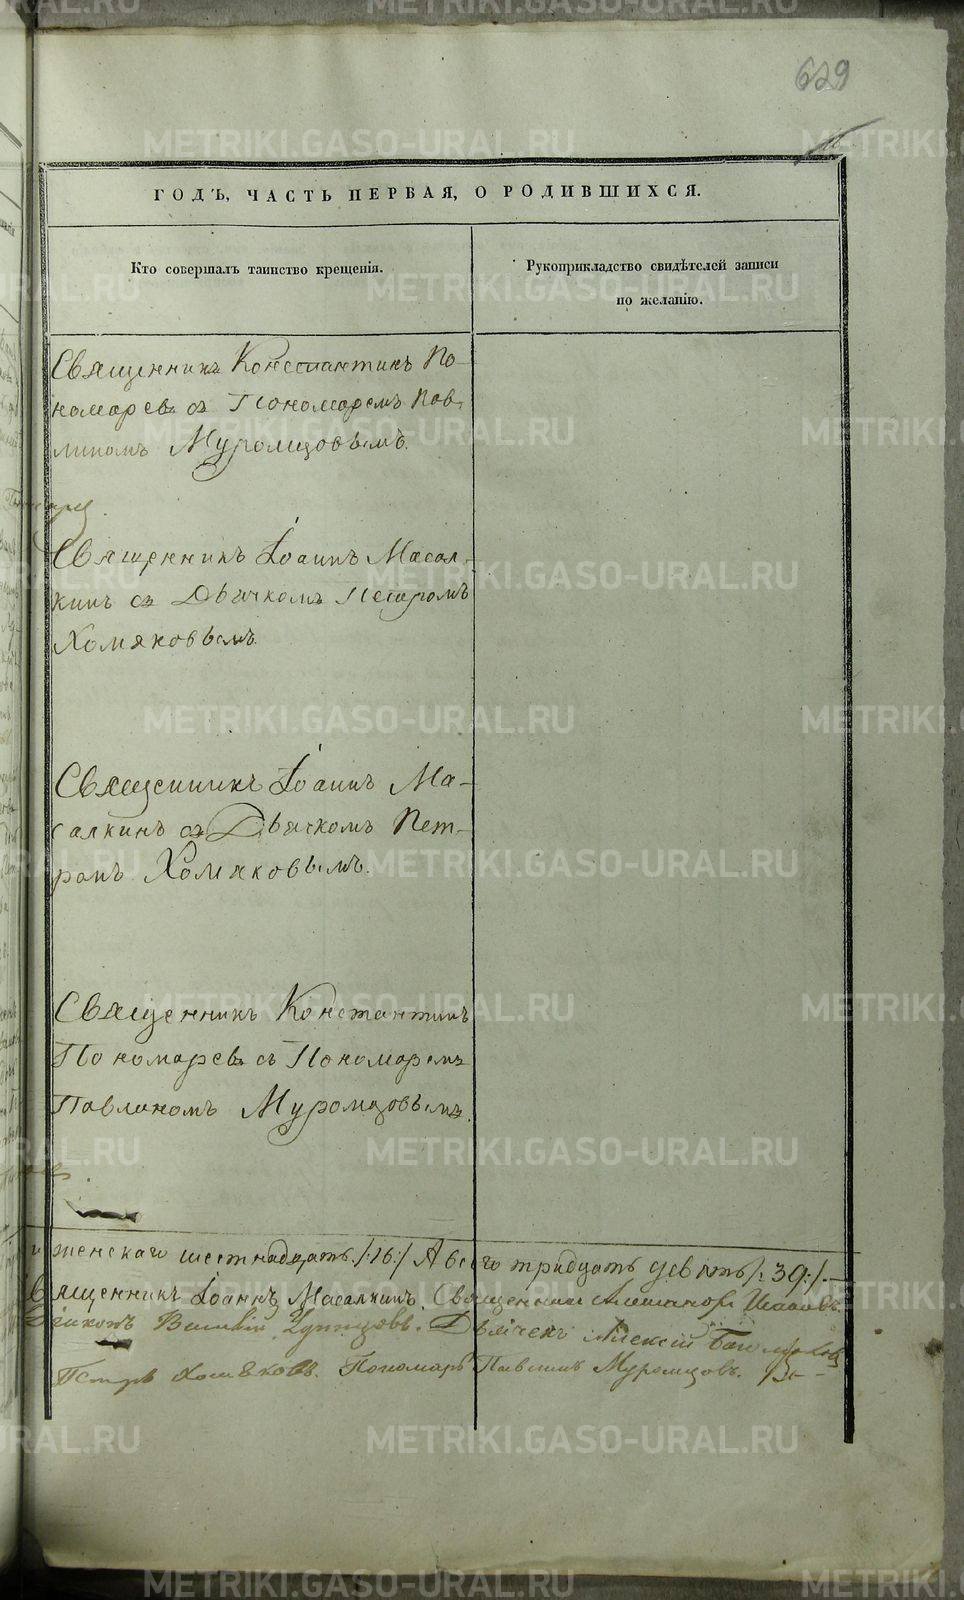 629
ГОДЪ, ЧАСТЬ ПЕРВАЯ, О РОДИВШИХСЯ.
Кто совершалъ таинство крещенія.
Рукоприкладство свидѣтелей записи
по желанію.
Священникъ Константинъ По-
номаревъ съ Пономаремъ Пав-
линомъ Муромцовымъ.
Священникъ Іоаннъ Масал-
кинъ съ Дьячкомъ Петромъ
Хомяковымъ
Священникъ Іоаннъ Ма-
салкинъ съ Дьячкомъ Пет-
ромъ Хомяковымъ.
Священникъ Константинъ
Пономаревъ съ Пономаремъ
Павлиномъ Муромцовымъ.
и женскаго шестнадцать /:16:/ А всего тридцать девять /:39:/.
Священникъ Іоаннъ Масалкинъ. Священникъ Александръ
Дьячекъ Алексій
Петръ Хомяковъ. Пономарь Павлинъ Муромцовъ.
METRIKI.GASO-URAL.RU